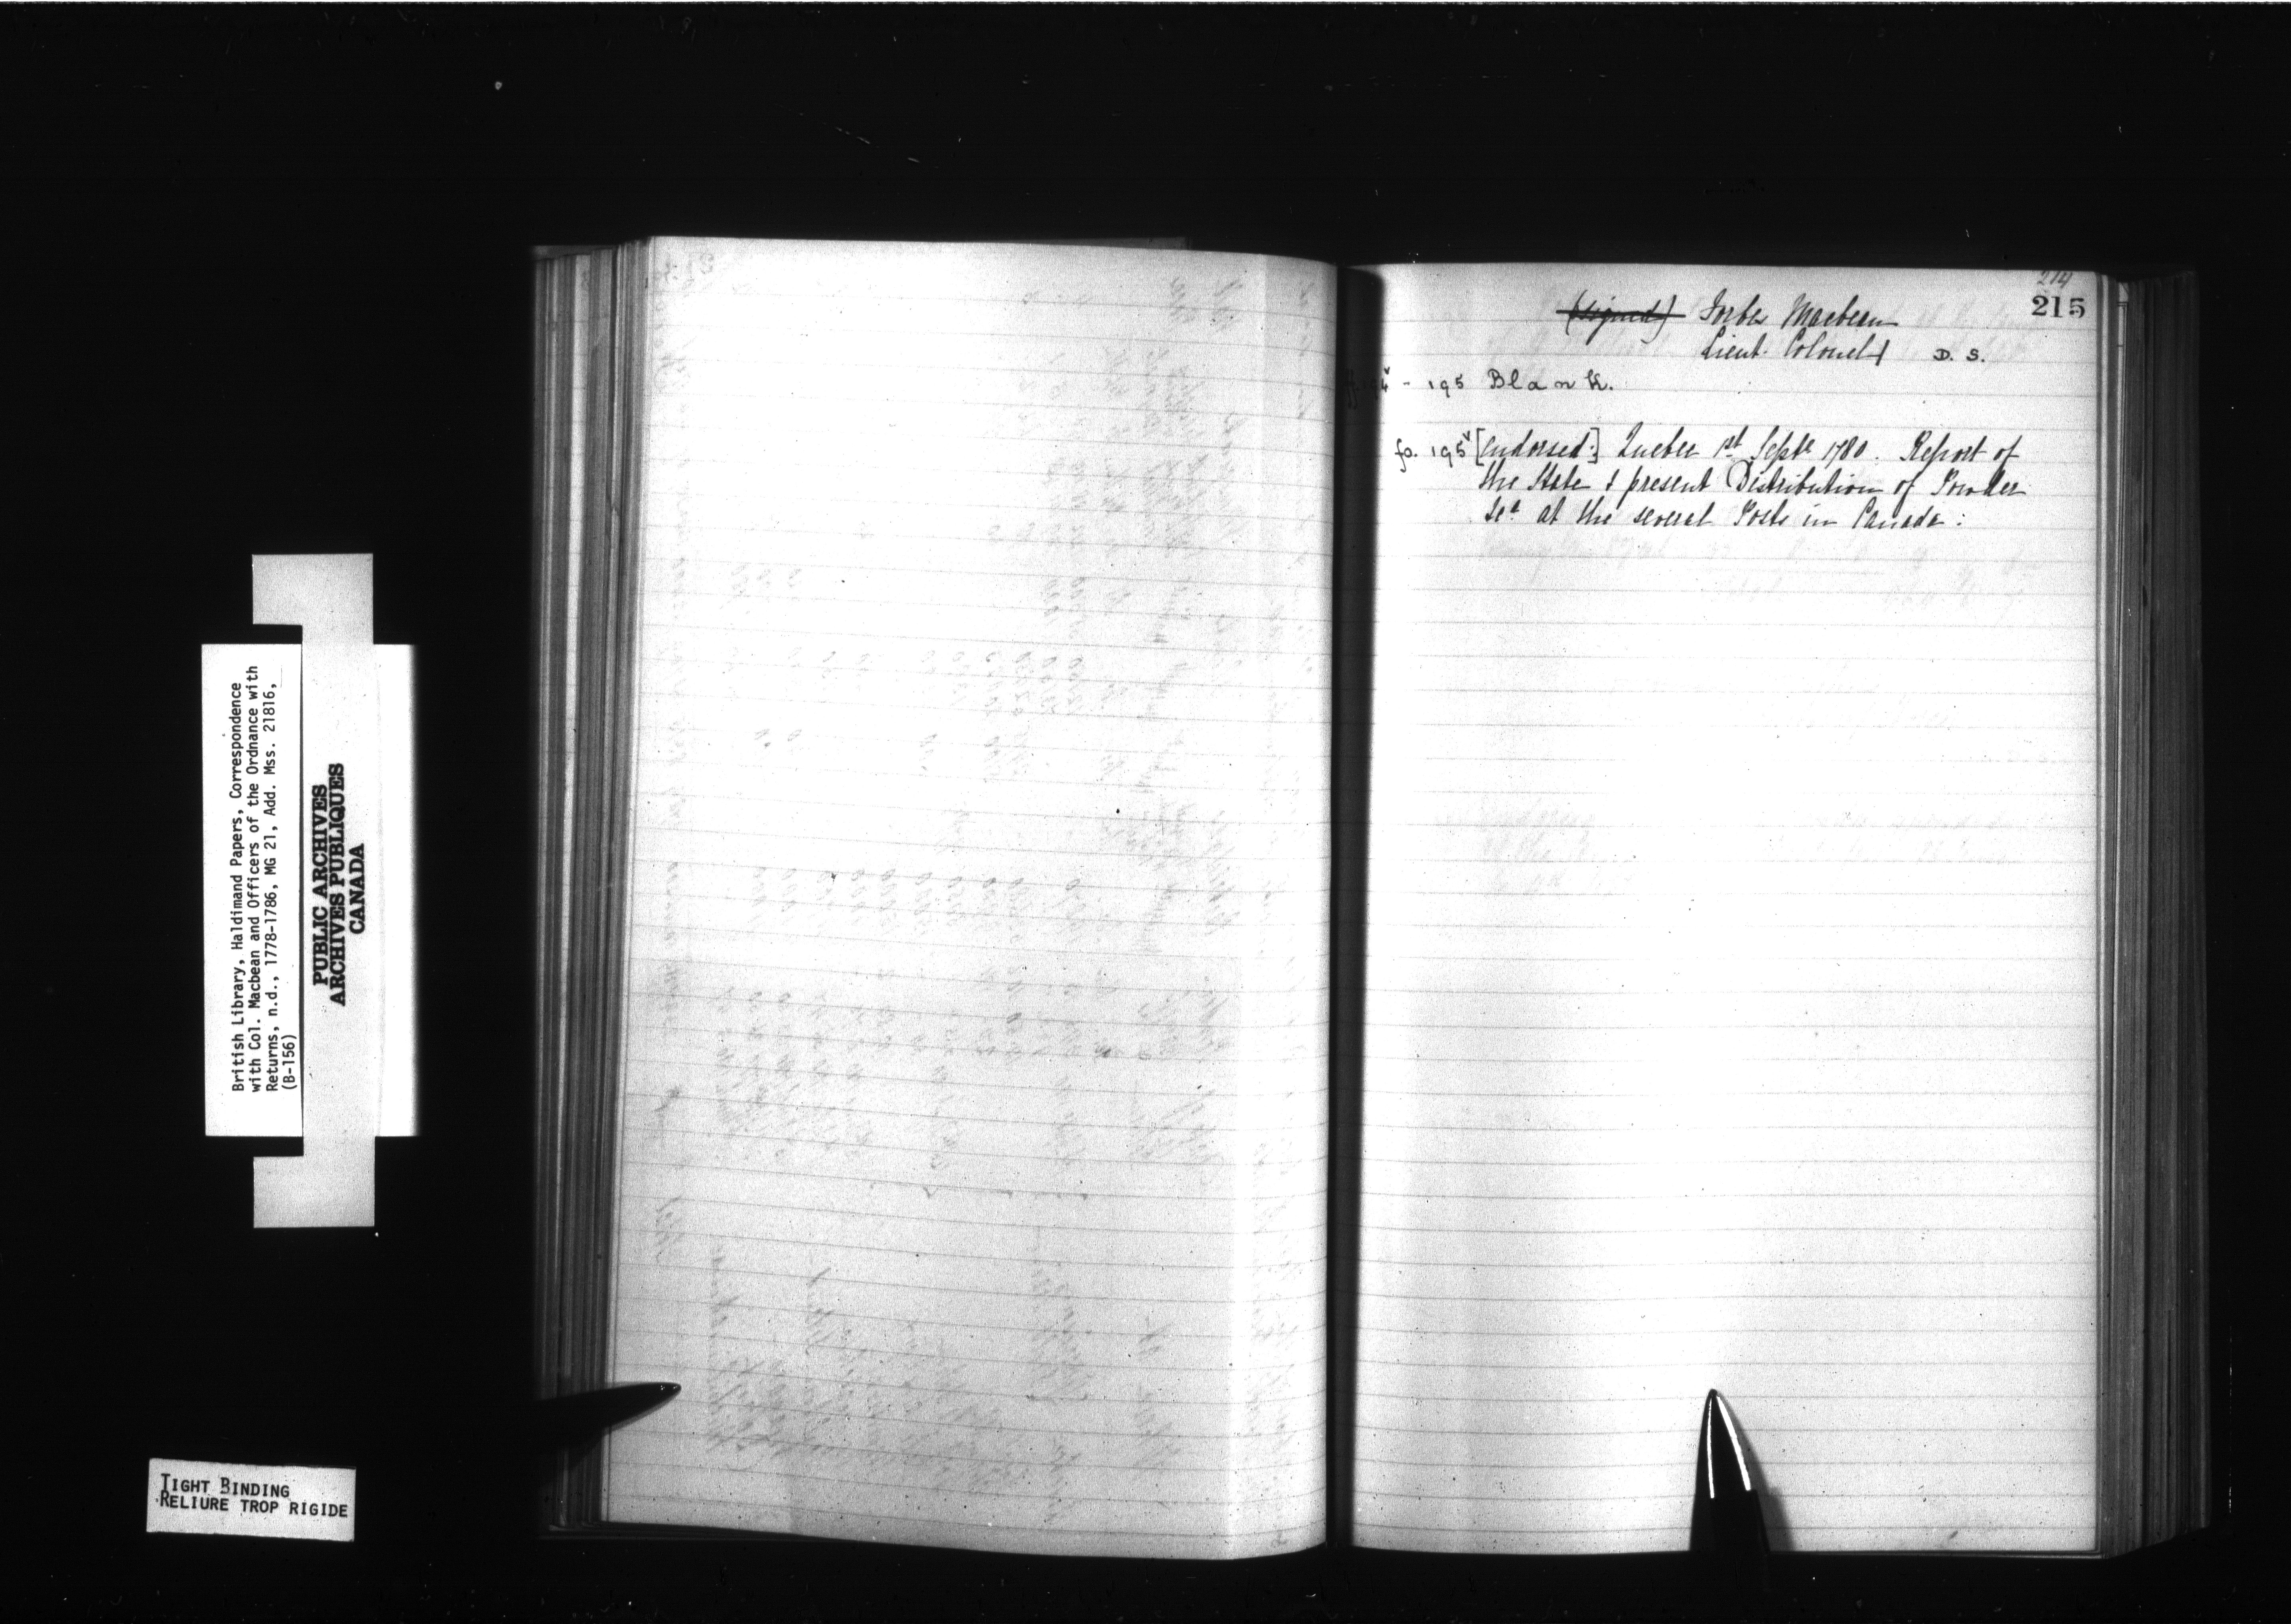 214
215
(signed) Forbes Macbean
Lieut. Colonel D. S.
ff. 194v - 195 Blank.
fo. 195v [Endorsed:] Quebec 1st Septr 1780. Report of
the State & present Distribution of Powder
&ca at the several Posts in Canada:
British Library, Haldimand Papers, Correspondence
with Col. Macbean and Officers of the Ordnance with
Returns, n.d., 1778-1786, MG 21, Add. Mss. 21816,
(B-156)
PUBLIC ARCHIVES
ARCHIVES PUBLIQUES
CANADA
TIGHT BINDING
RELIURE TROP RIGIDE